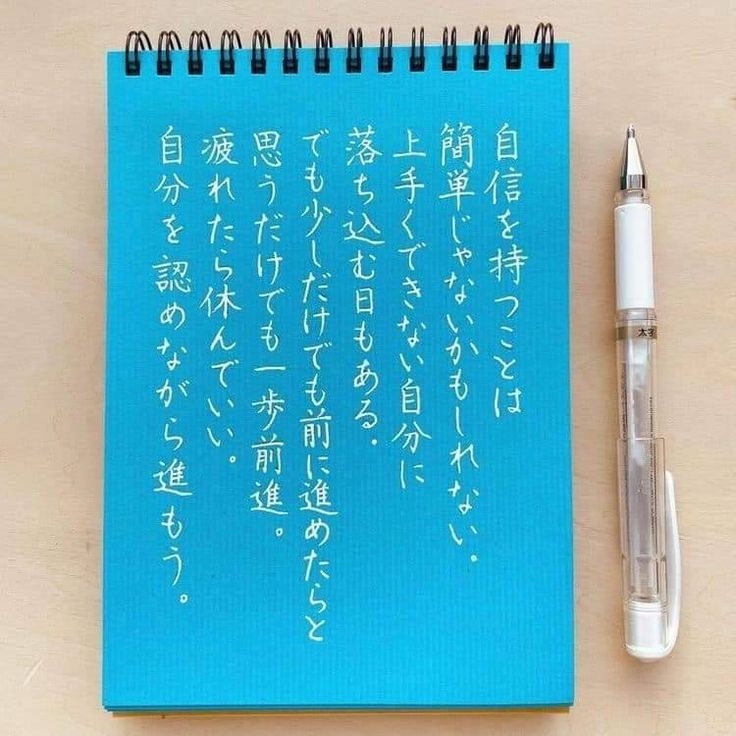 自信を持つことは
簡単じゃないかもしれない。
上手くできない自分に
落ち込む日もある。
でも少しだけでも前に進めたらと
思うだけでも一歩前進。
疲れたら休んでいい。
自分を認めながら進もう。
太字